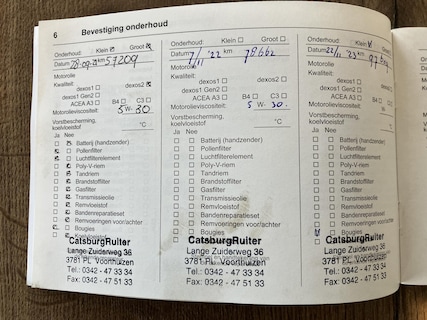 6 Bevestiging onderhoud
Onderhoud: Klein Groot
Datum 28-09-21 km 57209
Motorolie
Kwaliteit:
dexos1 dexos2
dexos1 Gen2
ACEA A3 B4 C3
Motorolieviscositeit: 5 W- 30
Vorstbescherming, koelvloeistof °C
Ja Nee
Batterij (handzender)
Pollenfilter
Luchtfilterelement
Poly-V-riem
Tandriem
Brandstoffilter
Gasfilter
Transmissieolie
Remvloeistof
Bandenreparatieset
Remvoeringen voor/achter
Bougies
CatsburgRuiter
Lange Zuiderweg 36
3781 PL Voorthuizen
Tel.: 0342 - 47 33 34
Fax: 0342 - 47 51 33
Onderhoud: Klein Groot
Datum 7/11 '22 km 78662
Motorolie
Kwaliteit:
dexos1 dexos2
dexos1 Gen2
ACEA A3 B4 C3
Motorolieviscositeit: 5 W- 30.
Vorstbescherming, koelvloeistof °C
Ja Nee
Batterij (handzender)
Pollenfilter
Luchtfilterelement
Poly-V-riem
Tandriem
Brandstoffilter
Gasfilter
Transmissieolie
Remvloeistof
Bandenreparatieset
Remvoeringen voor/achter
Bougies
CatsburgRuiter
Lange Zuiderweg 36
3781 PL Voorthuizen
Tel.: 0342 - 47 33 34
Fax: 0342 - 47 51 33
Onderhoud: Klein
Datum 22/11 '23 km
Motorolie
Kwaliteit:
dexos1
dexos1 Gen2
ACEA A3
Motorolieviscositeit:
Vorstbescherming, koelvloeistof
Ja Nee
Batterij (handzender)
Pollenfilter
Luchtfilterelement
Poly-V-riem
Tandriem
Brandstoffilter
Gasfilter
Transmissieolie
Remvloeistof
Bandenreparatieset
Remvoeringen voor/achter
Bougies
CatsburgRuiter
Lange Zuiderweg 36
3781 PL Voorthuizen
Tel.: 0342 - 47 33 34
Fax: 0342 - 47 51 33